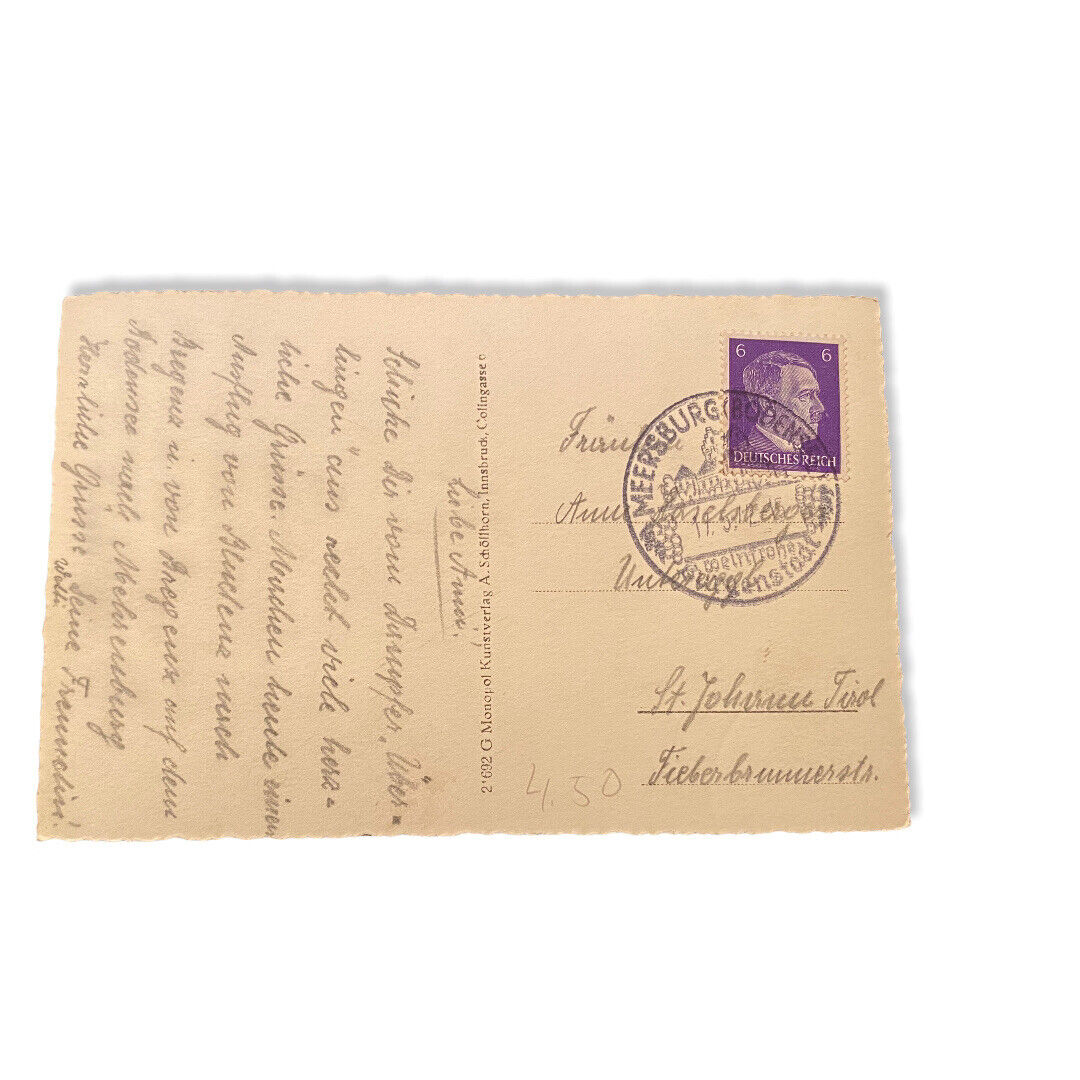 Liebe Anna!
Schicke Dir vom Dampfer „Über=
lingen" aus recht viele herz=
liche Grüsse. Machen heute einen
Ausflug von Bludenz nach
Bregenz u. von Bregenz auf dem
Bodensee nach Mehrsburg
Herzliche Grüsse Deine Freundin!
2*692 G Monopol Kunstverlag A. Schöllhorn, Innsbruck, Colingasse
6 6
DEUTSCHES REICH
MEERSBURG (BODENS
weinfrohe
Burgenstadt
Anna
St. Johann Tirol
Fieberbrunnerstr.
4.50